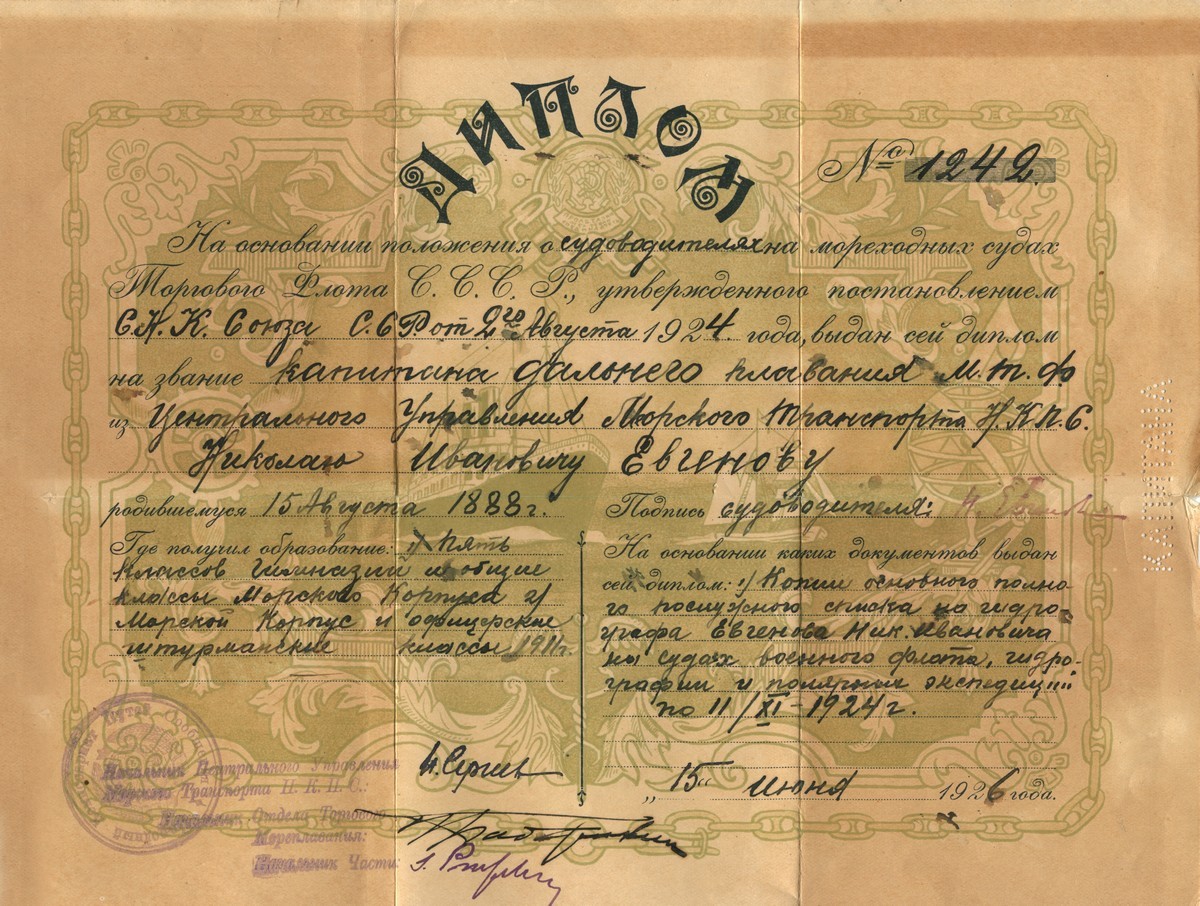 ДИПЛОМ
№ 1242.
На основании положения о судоводителях на мореходных судах
Торгового Флота С. С. С. Р., утвержденного постановлением
С.Н.К. Союза С.С.Р от 2го Августа 1924 года, выдан сей диплом
на звание капитана дальнего плавания М.т.ф
из Центрального Управления Морского Транспорта Н.К.П.С.
Николаю Ивановичу Евгенову
родившемуся 15 Августа 1888 г.
Подпись судоводителя:
Где получил образование: 1) Пять
классов гимназии и общие
классы Морского Корпуса 2)
Морской Корпус и офицерские
штурманские классы 1911 г.
На основании каких документов выдан
сей диплом: 1) Копии основного полно-
го послужного списка на гидро-
графа Евгенова Ник. Ивановича
на судах военного флота, гидро-
графии и полярных экспедиций
по 11/XI-1924 г.
„15“ июня 1926 года.
Начальник Центрального Управления
Морского Транспорта Н. К. П. С.:
Начальник Отдела Торгового
Мореплавания:
Начальник Части:
КАПИТАНА